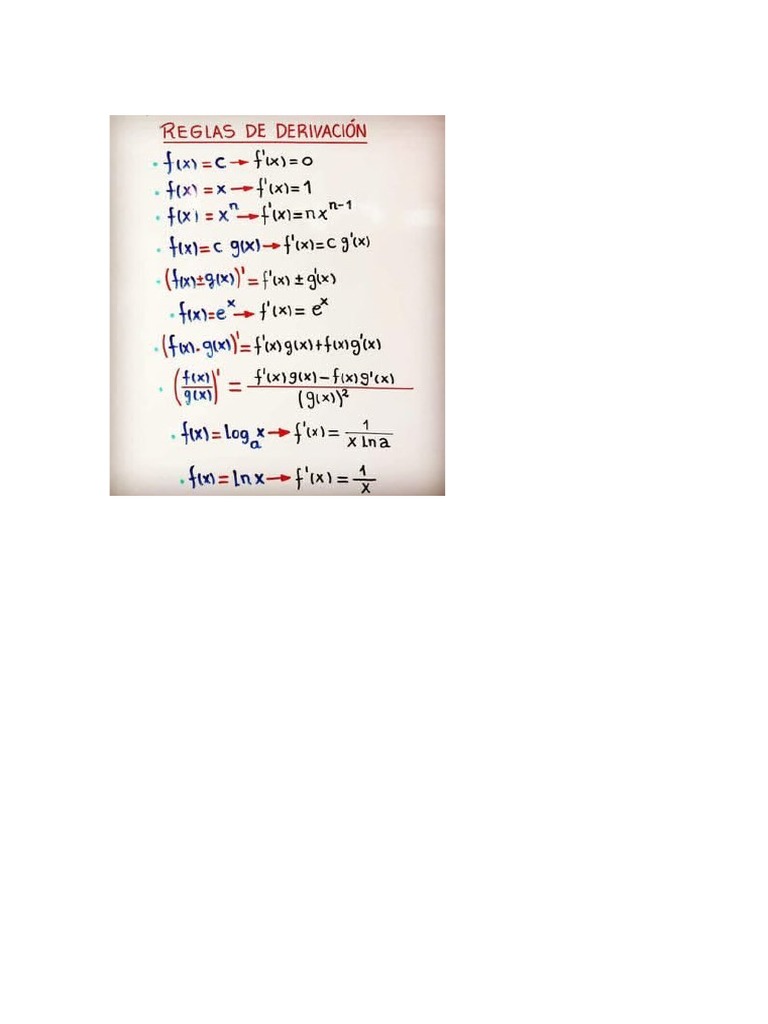 REGLAS DE DERIVACIÓN
• f(x) = c → f'(x) = 0
• f(x) = x → f'(x) = 1
• f(x) = xⁿ → f'(x) = n xⁿ⁻¹
• f(x) = c g(x) → f'(x) = c g'(x)
• (f(x) ± g(x))' = f'(x) ± g'(x)
• f(x) = eˣ → f'(x) = eˣ
• (f(x) . g(x))' = f'(x) g(x) + f(x) g'(x)
• (f(x)/g(x))' = f'(x) g(x) − f(x) g'(x) / (g(x))²
• f(x) = logₐ x → f'(x) = 1 / x ln a
• f(x) = ln x → f'(x) = 1/x